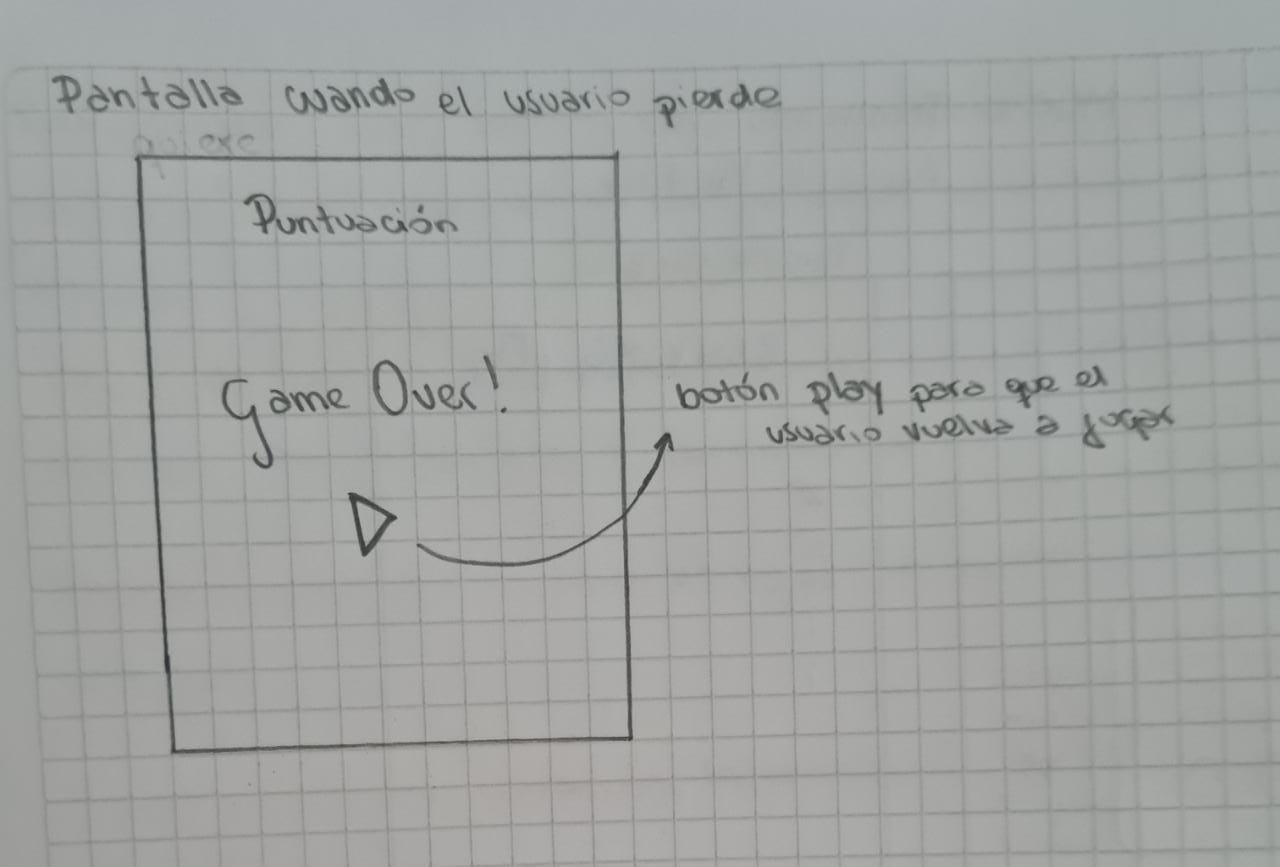 Pantalla cuando el usuario pierde
Puntuación
Game Over!
botón play para que el
usuario vuelva a jugar